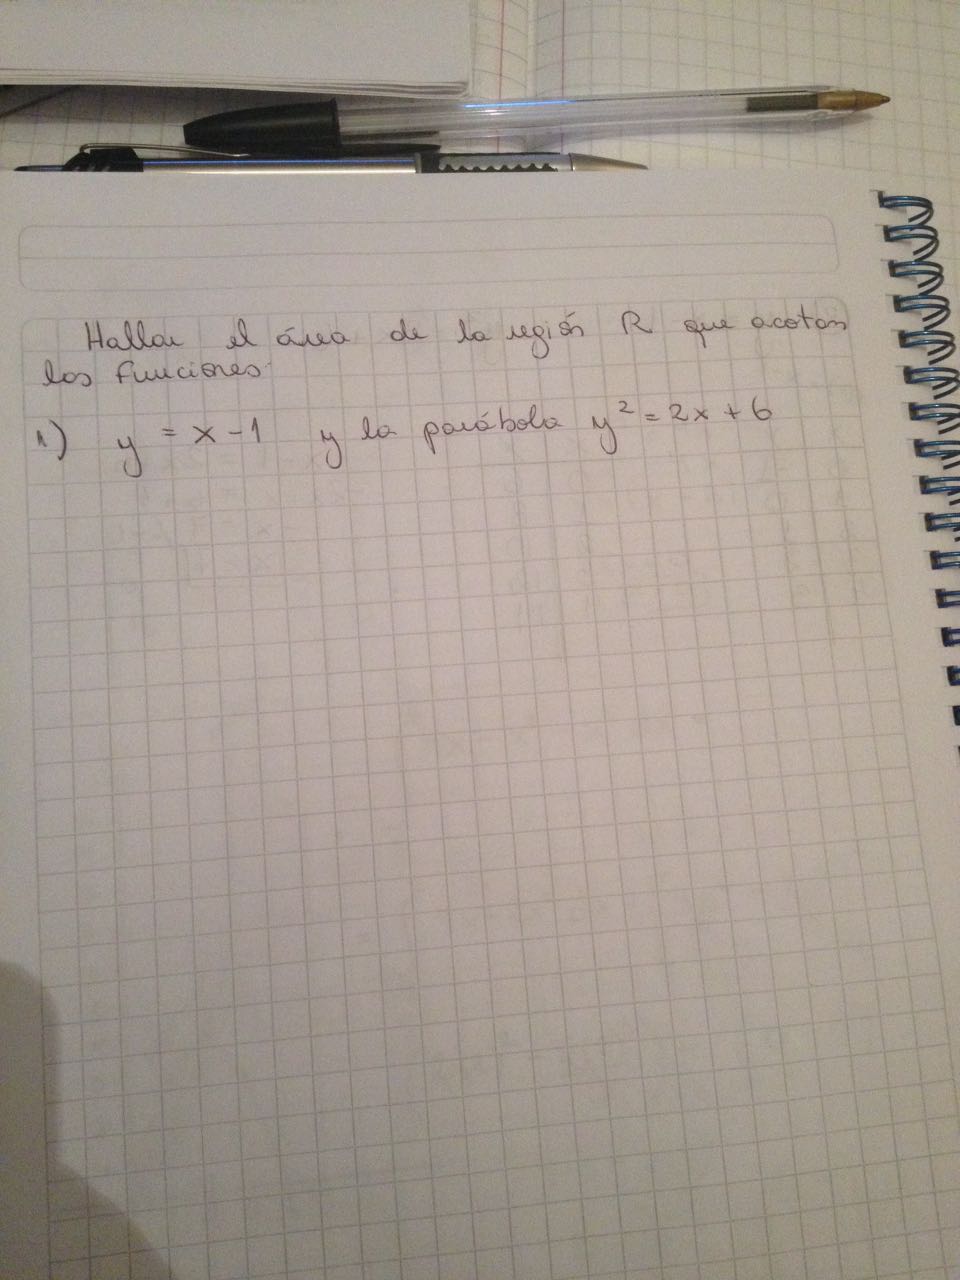 Hallar el área de la región R que acotan
las funciones:
1) y = x - 1 y la parábola y² = 2x + 6